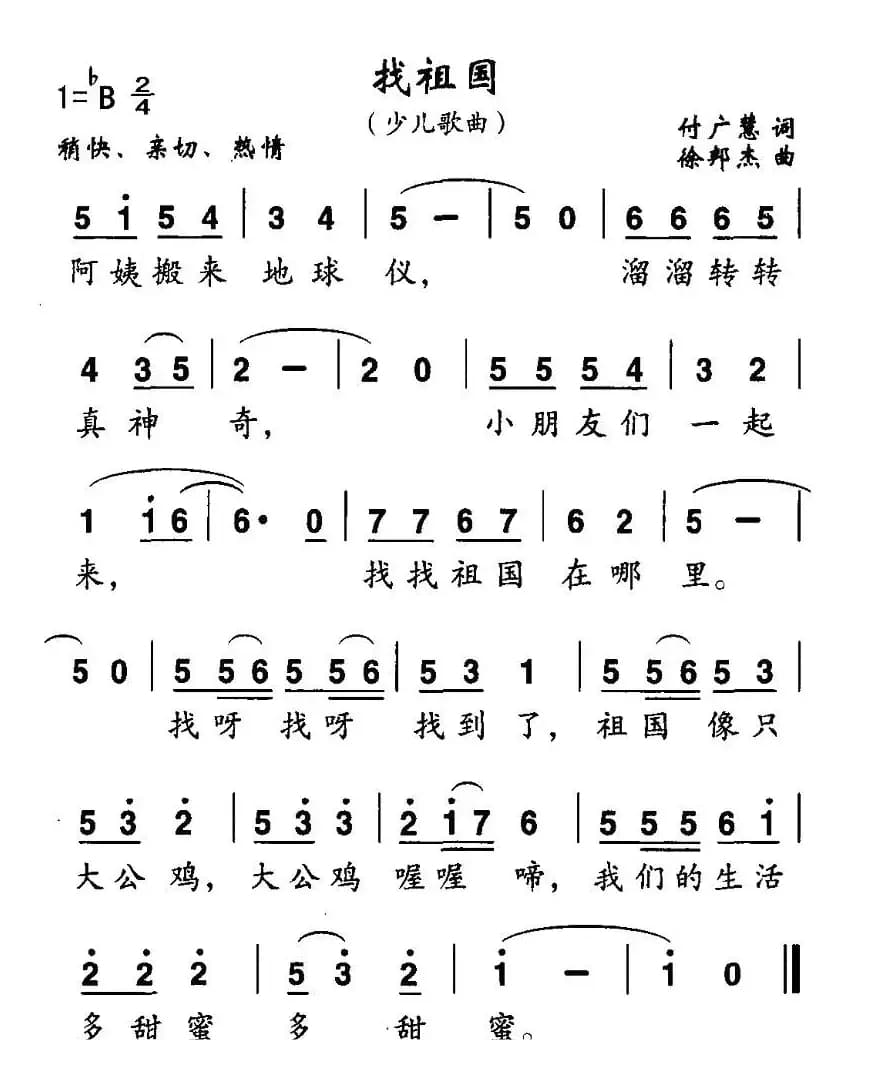 找祖国
1=♭B 2/4
(少儿歌曲)
付广慧 词
稍快、亲切、热情
徐邦杰 曲
5 i̇ 5 4 | 3 4 | 5 — | 5 0 | 6 6 6 5 |
阿姨搬来 地球 仪, 溜溜转转
4 3 5 | 2 — | 2 0 | 5 5 5 4 | 3 2 |
真神 奇, 小朋友们 一起
1 i̇ 6 | 6· 0 | 7 7 6 7 | 6 2 | 5 — |
来, 找找祖国 在哪 里。
5 0 | 5 5 6 5 5 6 | 5 3 1 | 5 5 6 5 3 |
找呀 找呀 找到 了, 祖国 像只
5 3̇ 2̇ | 5 3̇ 3̇ | 2̇ i̇ 7 6 | 5 5 5 6 i̇ |
大公 鸡, 大公鸡 喔喔 啼, 我们的生活
2̇ 2̇ 2̇ | 5 3̇ 2̇ | i̇ — | i̇ 0 ‖
多甜蜜 多 甜 蜜。